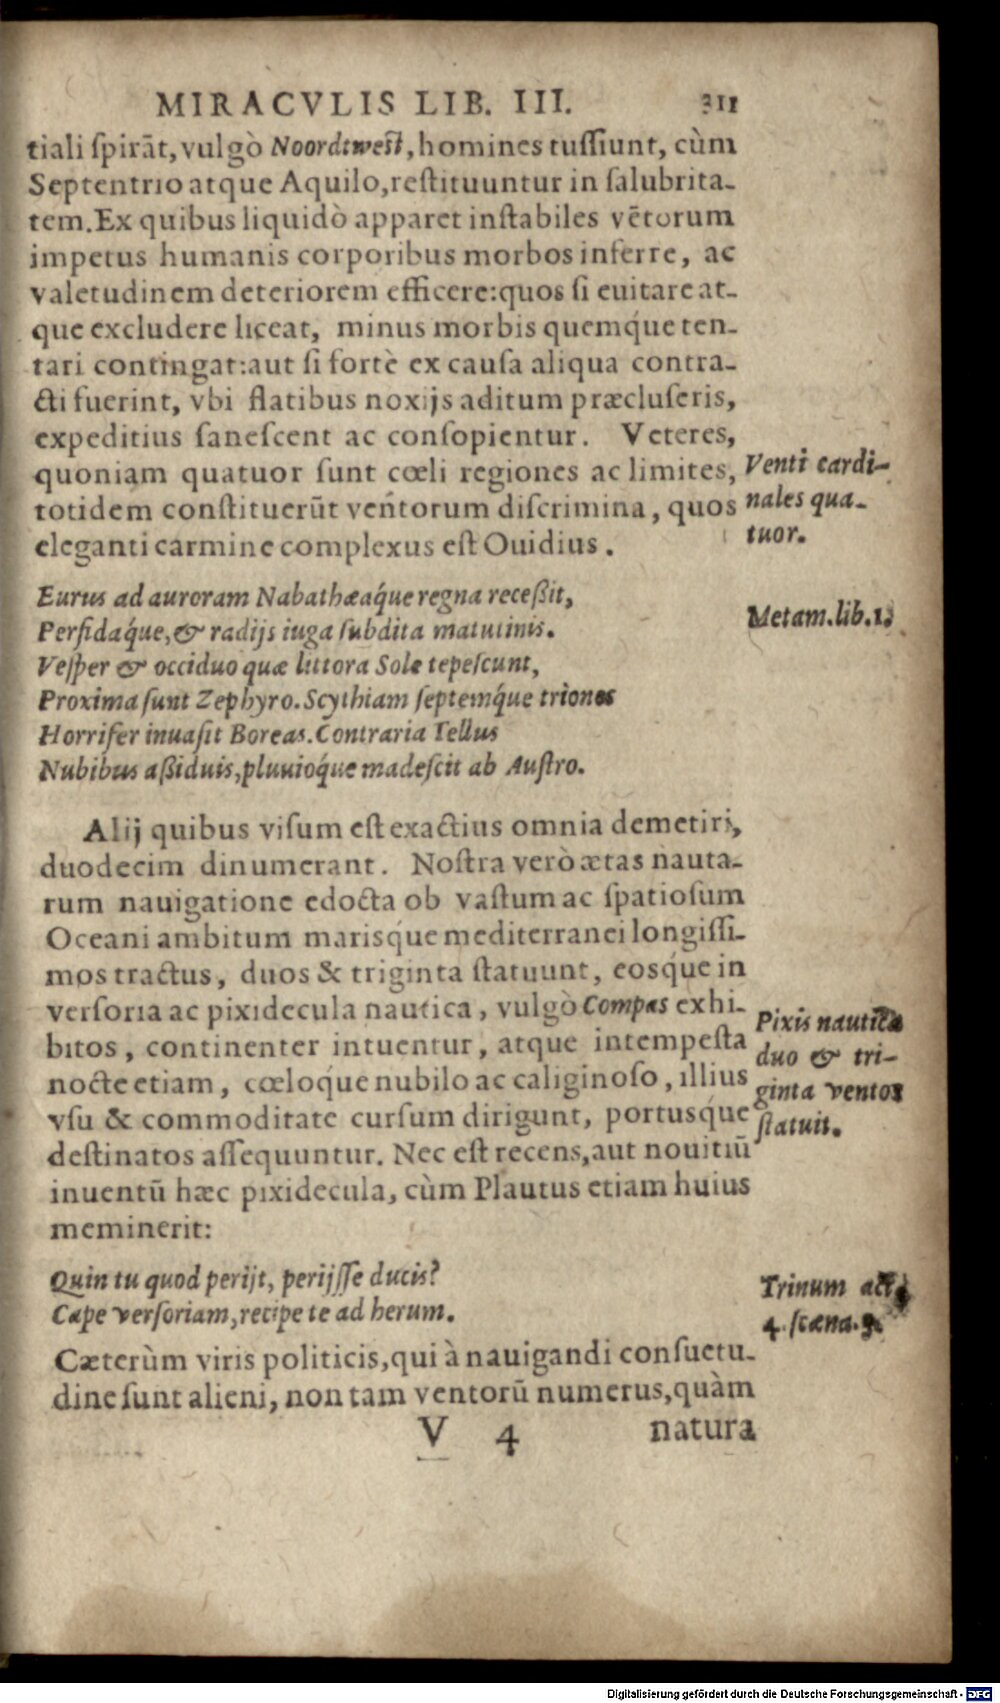 MIRACVLIS LIB. III. 311
tiali ſpirãt, vulgò Noordtweſt, homines tuſſiunt, cùm
Septentrio atque Aquilo, reſtituuntur in ſalubrita-
tem. Ex quibus liquidò apparet inſtabiles vẽtorum
impetus humanis corporibus morbos inferre, ac
valetudinem deteriorem efficere: quos ſi euitare at-
que excludere liceat, minus morbis quemq́ue ten-
tari contingat: aut ſi fortè ex cauſa aliqua contra-
cti fuerint, vbi flatibus noxijs aditum præcluſeris,
expeditius ſaneſcent ac conſopientur. Veteres,
quoniam quatuor ſunt cœli regiones ac limites,
totidem conſtituerũt ventorum diſcrimina, quos
eleganti carmine complexus eſt Ouidius.
Venti cardi-
nales qua-
tuor.
Eurus ad auroram Nabathæaq́ue regna receßit,
Perſidaq́ue, & radijs iuga ſubdita matutinis.
Veſper & occiduo quæ littora Sole tepeſcunt,
Proxima ſunt Zephyro. Scythiam ſeptemq́ue triones
Horrifer inuaſit Boreas. Contraria Tellus
Nubibus aßiduis, pluuioq́ue madeſcit ab Auſtro.
Metam. lib. 1.
Alij quibus viſum eſt exactius omnia demetiri,
duodecim dinumerant. Noſtra verò ætas nauta-
rum nauigatione edocta ob vaſtum ac ſpatioſum
Oceani ambitum marisq́ue mediterranei longiſſi-
mos tractus, duos & triginta ſtatuunt, eosq́ue in
verſoria ac pixidecula nautica, vulgò Compas exhi-
bitos, continenter intuentur, atque intempeſta
nocte etiam, cœloq́ue nubilo ac caliginoſo, illius
vſu & commoditate curſum dirigunt, portusq́ue
deſtinatos aſſequuntur. Nec eſt recens, aut nouitiũ
inuentũ hæc pixidecula, cùm Plautus etiam huius
meminerit:
Pixis nautica
duo & tri-
ginta ventos
ſtatuit.
Quin tu quod perijt, perijſſe ducis?
Cape verſoriam, recipe te ad herum.
Trinum act.
4. ſcæna. 3.
Cæterùm viris politicis, qui à nauigandi conſuetu-
dine ſunt alieni, non tam ventorũ numerus, quàm
V 4 natura
Digitalisierung gefördert durch die Deutsche Forschungsgemeinschaft - DFG